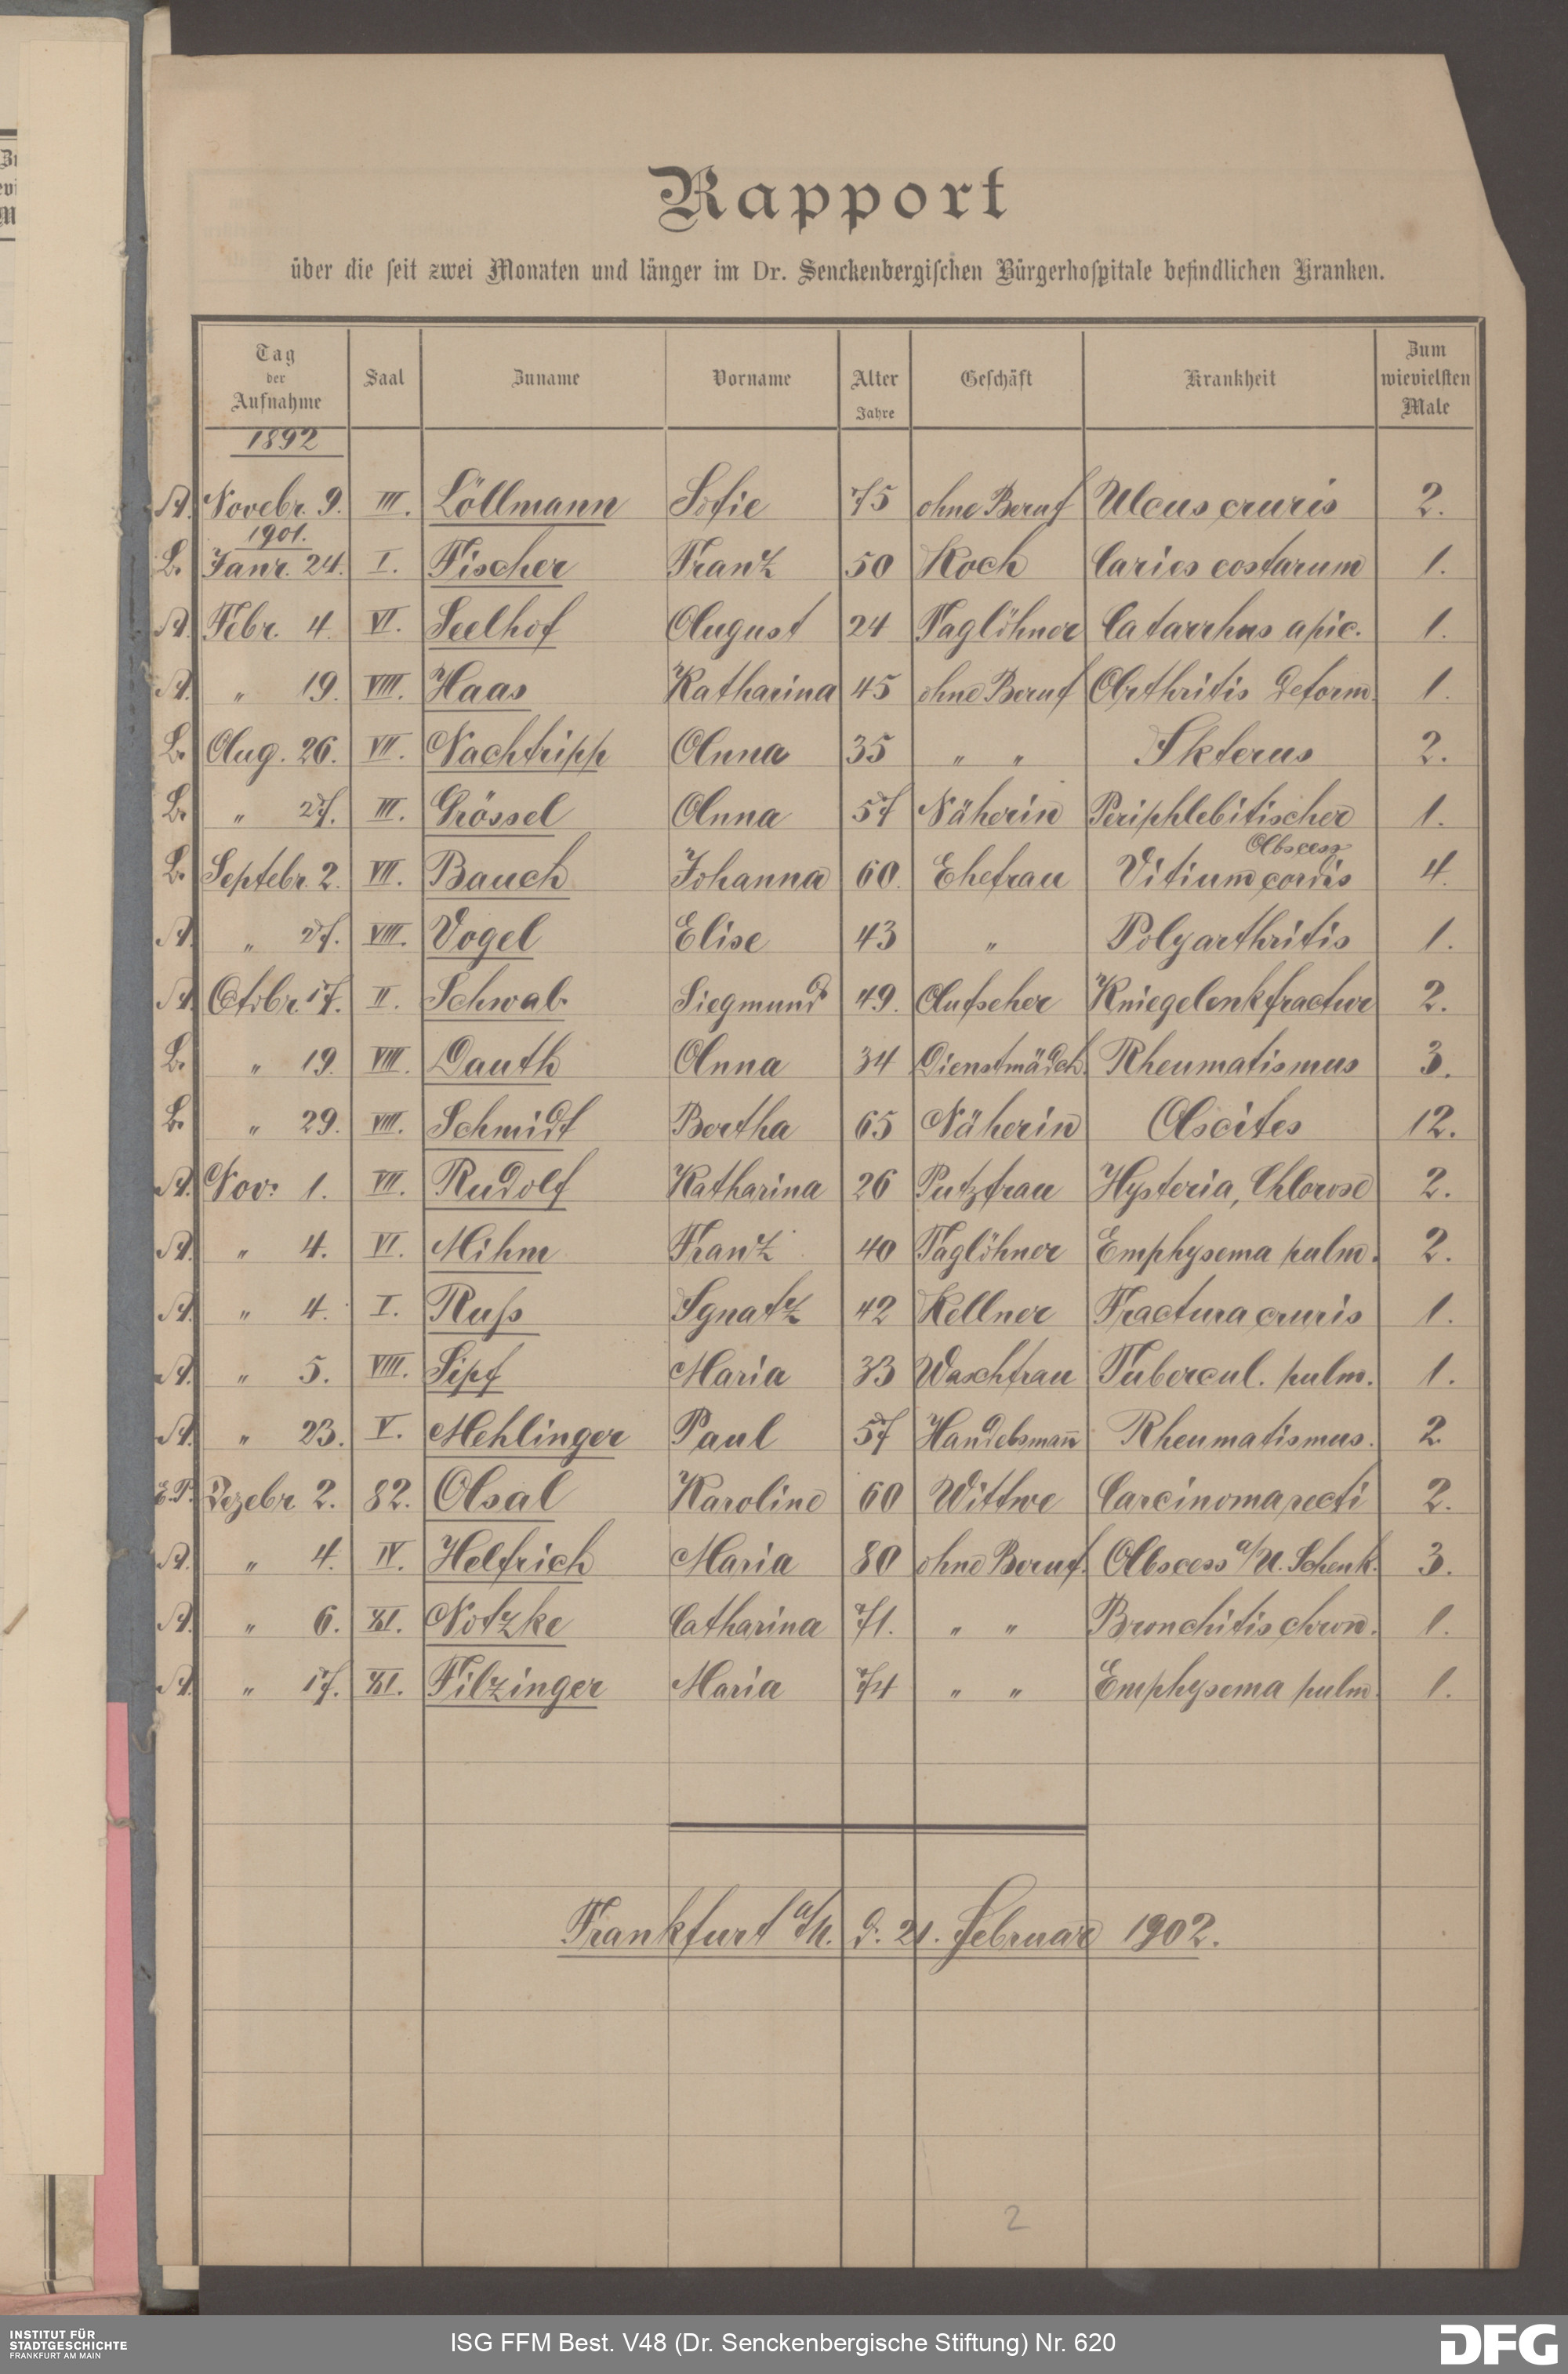 Rapport
über die seit zwei Monaten und länger im Dr. Senckenbergischen Bürgerhospitale befindlichen Kranken.
Tag der Aufnahme Saal Zuname Vorname Alter Jahre Geschäft Krankheit Zum wievielsten Male
1892
A. Novebr. 9. III. Löllmann Sofie 75 ohne Beruf Ulcus cruris 2.
1901.
B. Janr. 24. I. Fischer Franz 50 Koch Caries costarum 1.
A. Febr. 4. VI. Seelhof August 24 Taglöhner Catarrhus apic. 1.
A. " 19. VIII. Haas Katharina 45 ohne Beruf Arthritis deform. 1.
B. Aug. 26. VII. Nachtripp Anna 35 " " Ikterus 2.
B. " 27. III. Grössel Anna 57 Näherin Periphlebitischer 1.
Abscess
B. Septebr. 2. VII. Bauch Johanna 60. Ehefrau Vitium cordis 4.
A. " 27. VIII. Vogel Elise 43 " Polyarthritis 1.
A. Octobr. 17. II. Schwab Siegmund 49. Aufseher Kniegelenkfractur 2.
B. " 19. VIII. Dauth Anna 34 Dienstmädch. Rheumatismus 3.
B. " 29. VIII. Schmidt Bertha 65 Näherin Ascites 12.
A. Nov: 1. VII. Rudolf Katharina 26 Putzfrau Hysteria, Chlorose 2.
A. " 4. VI. Mihm Franz 40 Taglöhner Emphysema pulm. 2.
A. " 4. I. Ruß Ignatz 42 Kellner Fractura cruris 1.
A. " 5. VIII. Sipf Maria 33 Waschfrau Tubercul. pulm. 1.
A. " 23. V. Mehlinger Paul 57 Handelsmann Rheumatismus. 2
E.P. Dezebr. 2. 82. Asal Karoline 60 Wittwe Carcinoma recti 2.
A. " 4. IV. Helfrich Maria 80 ohne Beruf. Abscess a/U. Schenk. 3.
A. " 6. XI. Notzke Catharina 71. " " Bronchitis chron. 1.
A. " 17. XI. Filzinger Maria 74 " " Emphysema pulm. 1.
Frankfurt a/M. d. 21. Februar 1902.
2
INSTITUT FÜR
STADTGESCHICHTE
FRANKFURT AM MAIN
ISG FFM Best. V48 (Dr. Senckenbergische Stiftung) Nr. 620
DFG